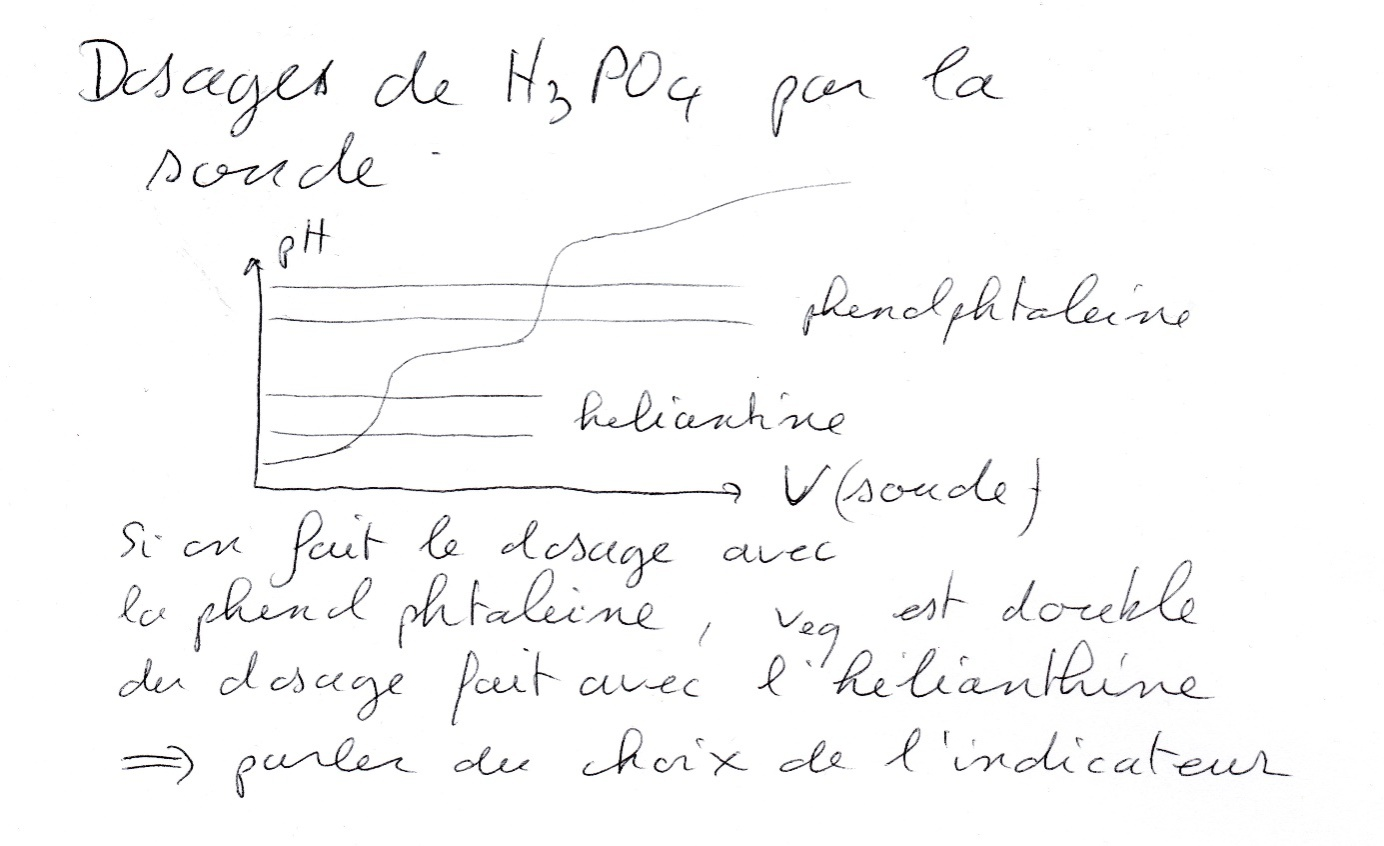 Dosages de H3PO4 par la
soude.
pH
phenolphtaleine
heliantine
V (soude)
Si on fait le dosage avec
la phenol phtaleine, veq est double
du dosage fait avec l'hélianthine
=> parler du choix de l'indicateur